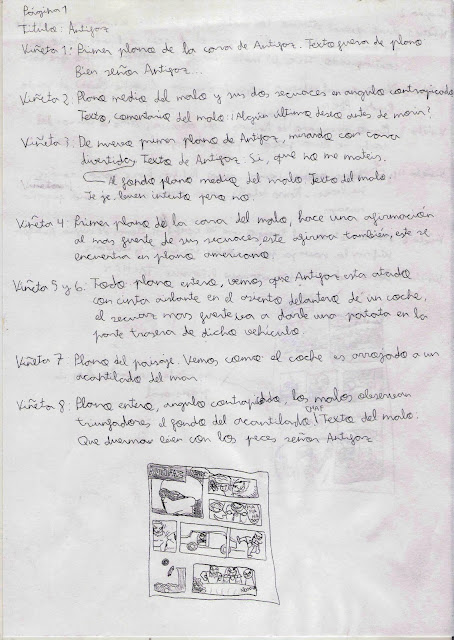 Página 1
Titulo: Antifaz
Viñeta 1: Primer plano de la cara de Antifaz. Texto fuera de plano
Bien señor Antifaz...
Viñeta 2: Plano medio del malo y sus dos secuaces en angulo contrapicado
Texto, comentario del malo: ¡Algun ultimo deseo antes de morir!
Viñeta 3: De nuevo primer plano de Antifaz, mirando con cara
divertida. Texto de Antifaz. Si, que no me mateis.
Al fondo plano medio del malo. Texto del malo.
Je je, buen intento pero no.
Viñeta 4: Primer plano de la cara del malo, hace una afirmación
al mas fuerte de sus secuaces, este afirma también, este se
encuentra en plano americano
Viñeta 5 y 6: Todo plano entero, vemos que Antifaz esta atado
con cinta aislante en el asiento delantero de un coche,
el secuaz mas fuerte va a darle una patata en la
parte trasera de dicho vehículo.
Viñeta 7: Plano del paisaje. Vemos como el coche es arrojado a un
acantilado del mar.
Viñeta 8: Plano entero, angulo contrapicado, los malos observan
triunfadores el fondo del acantilado CHAF! Texto del malo:
Que duerma bien con los peces señor Antifaz